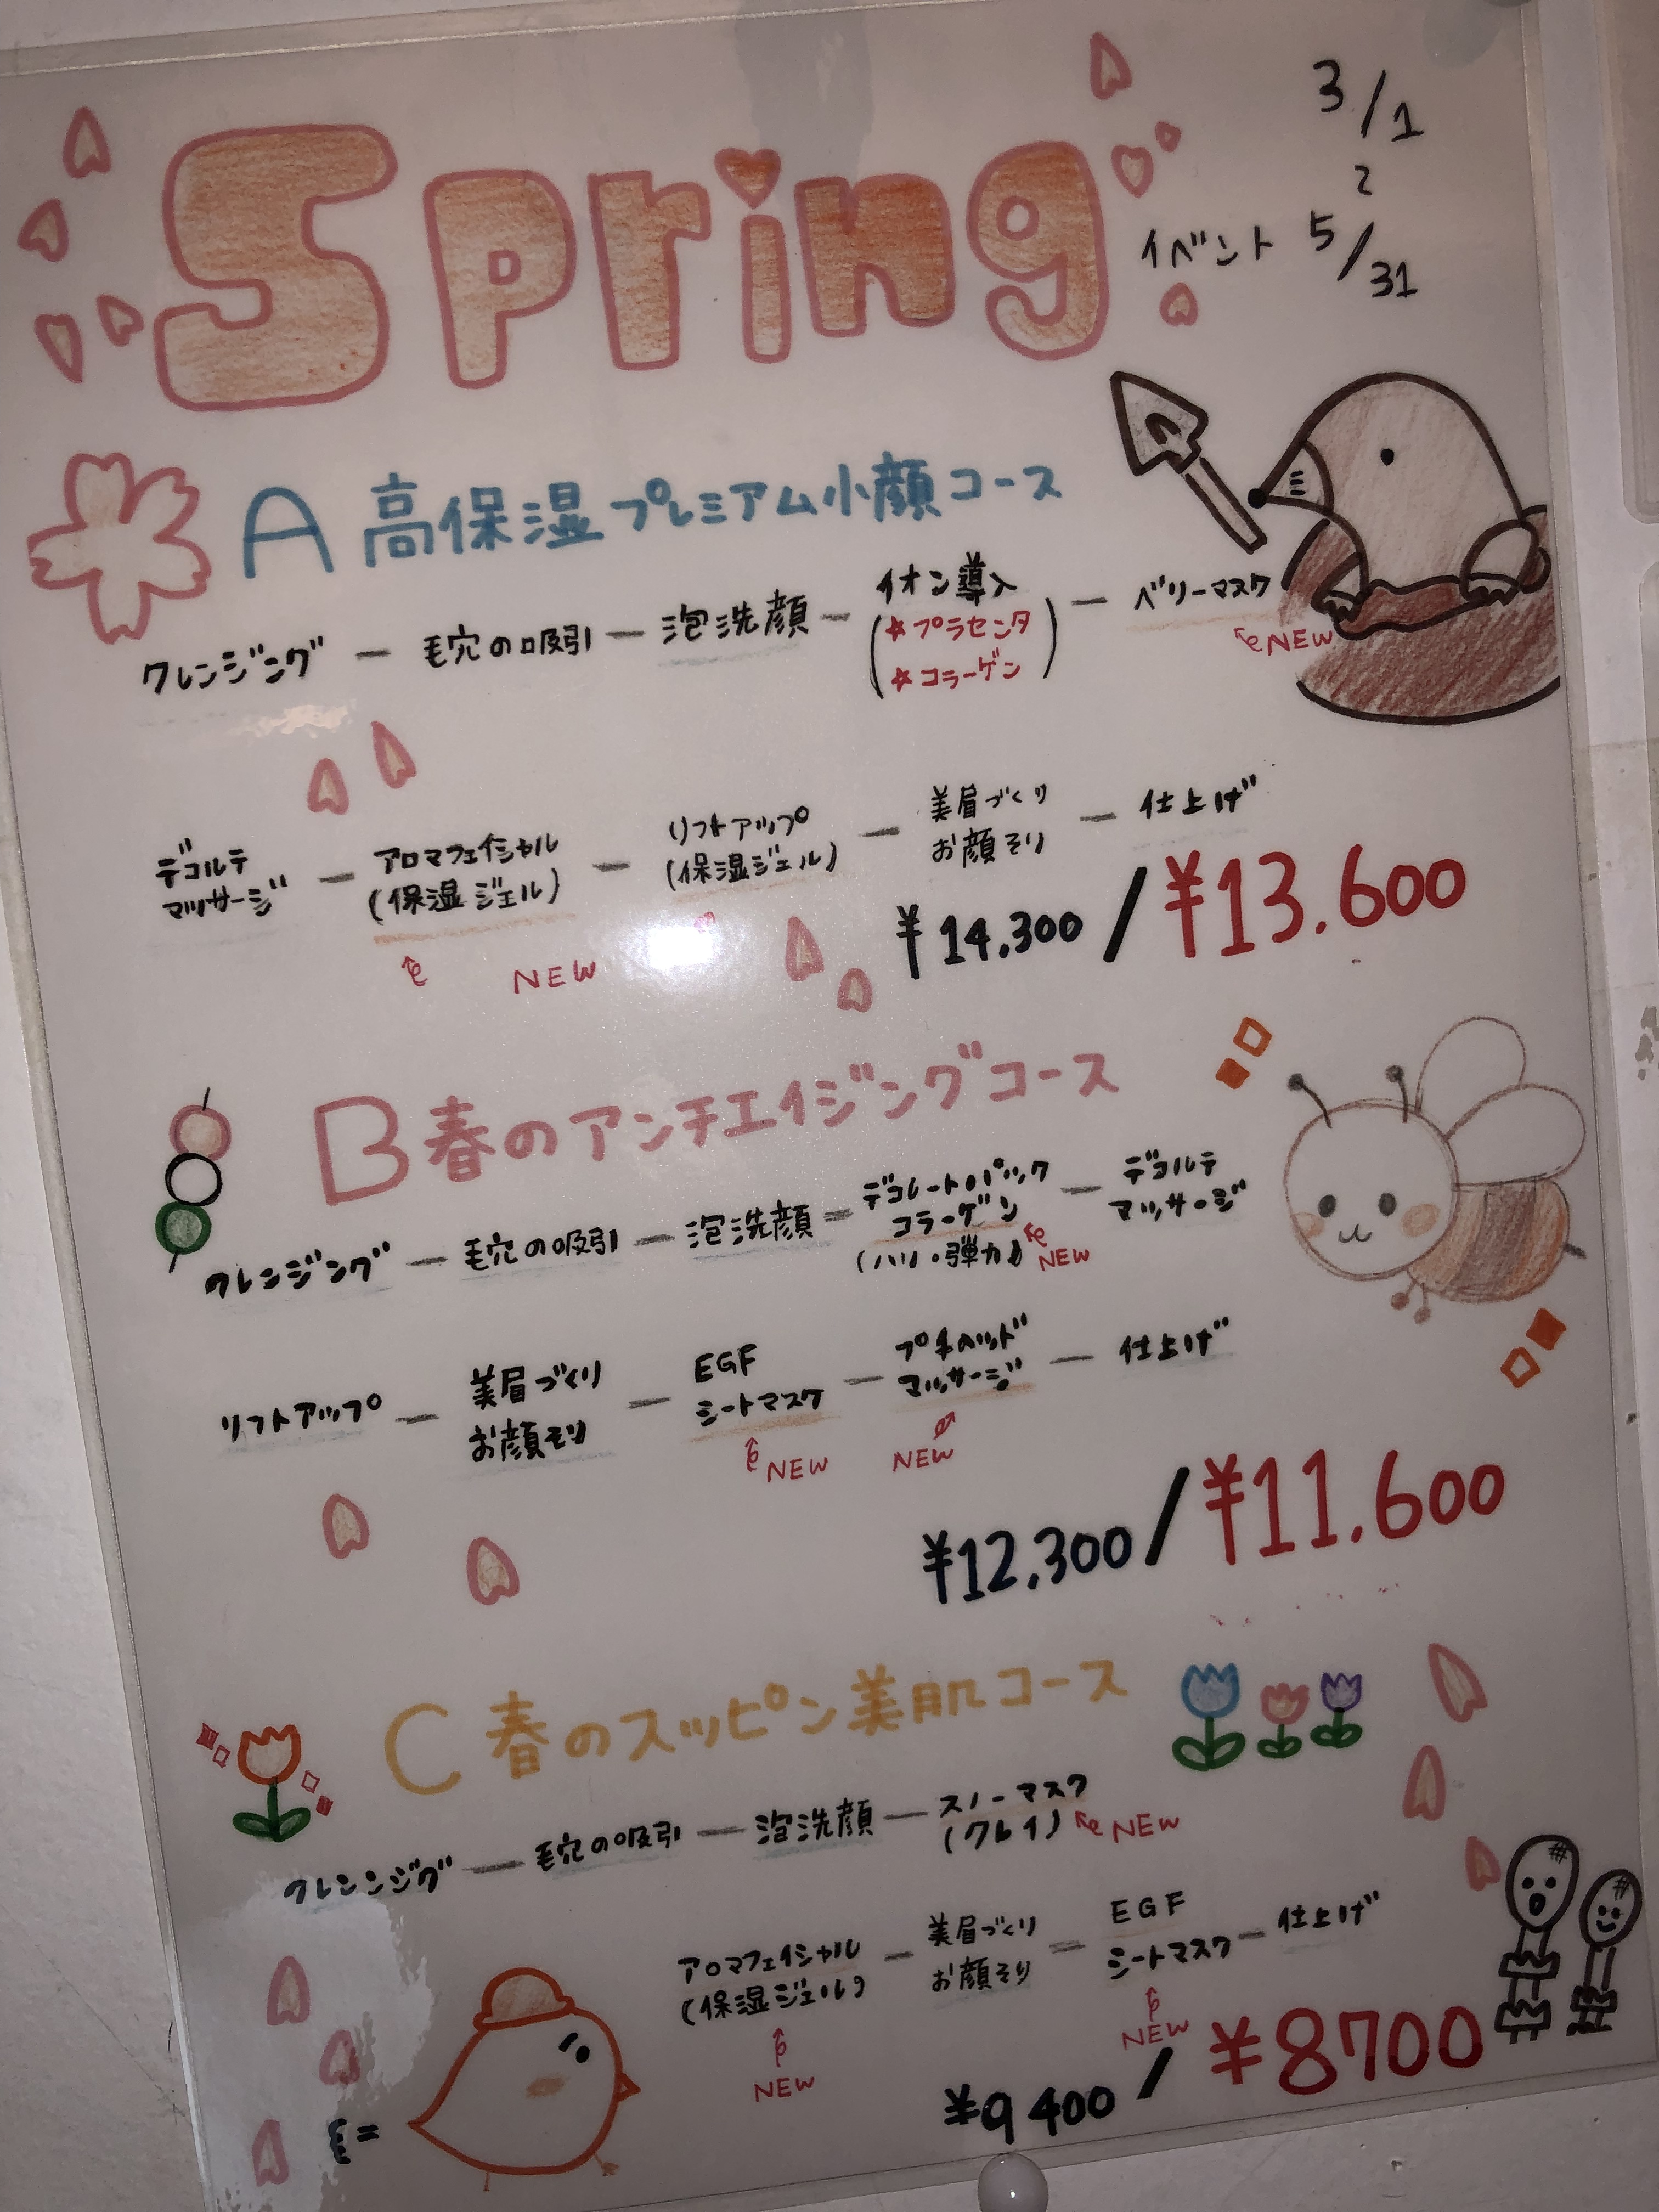 Spring
イベント 3/1
〜
5/31
A 高保湿プレミアム小顔コース
クレンジング ー 毛穴の吸引 ー 泡洗顔 ー イオン導入 (☆プラセンタ ☆コラーゲン) ー ベリーマスク
NEW
デコルテマッサージ ー アロマフェイシャル (保湿ジェル) ー リフトアップ (保湿ジェル) ー 美眉づくり お顔そり ー 仕上げ
NEW
¥14,300 / ¥13.600
B 春のアンチエイジングコース
クレンジング ー 毛穴の吸引 ー 泡洗顔 ー デコレートパック コラーゲン (ハリ・弾力) ー デコルテマッサージ
NEW
リフトアップ ー 美眉づくり お顔そり ー EGF シートマスク ー プチヘッドマッサージ ー 仕上げ
NEW NEW
¥12,300 / ¥11.600
C 春のスッピン美肌コース
クレンンジグ ー 毛穴の吸引 ー 泡洗顔 ー スノーマスク (クレイ)
NEW
アロマフェイシャル (保湿ジェル) ー 美眉づくり お顔そり ー EGF シートマスク ー 仕上げ
NEW NEW
¥9400 / ¥8700